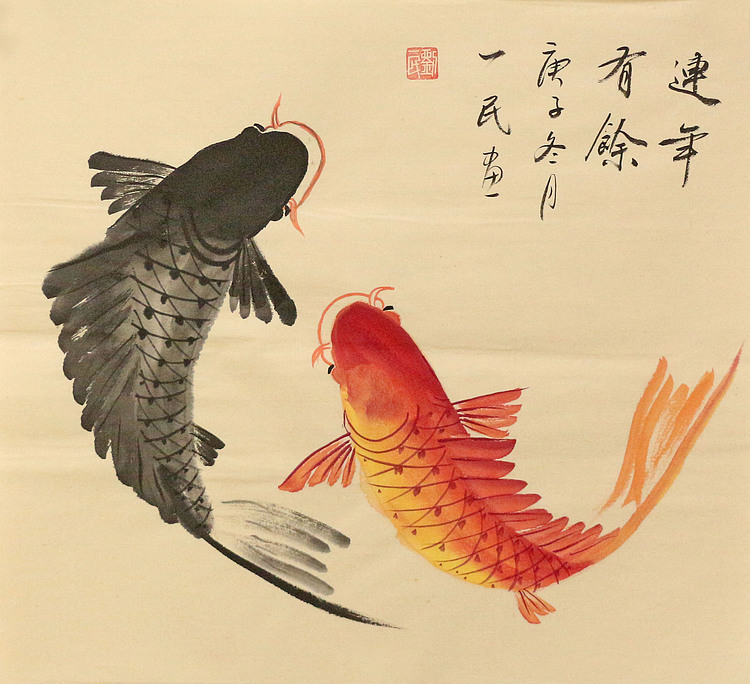 連年
有餘
庚子冬月
一民畫
劉一民